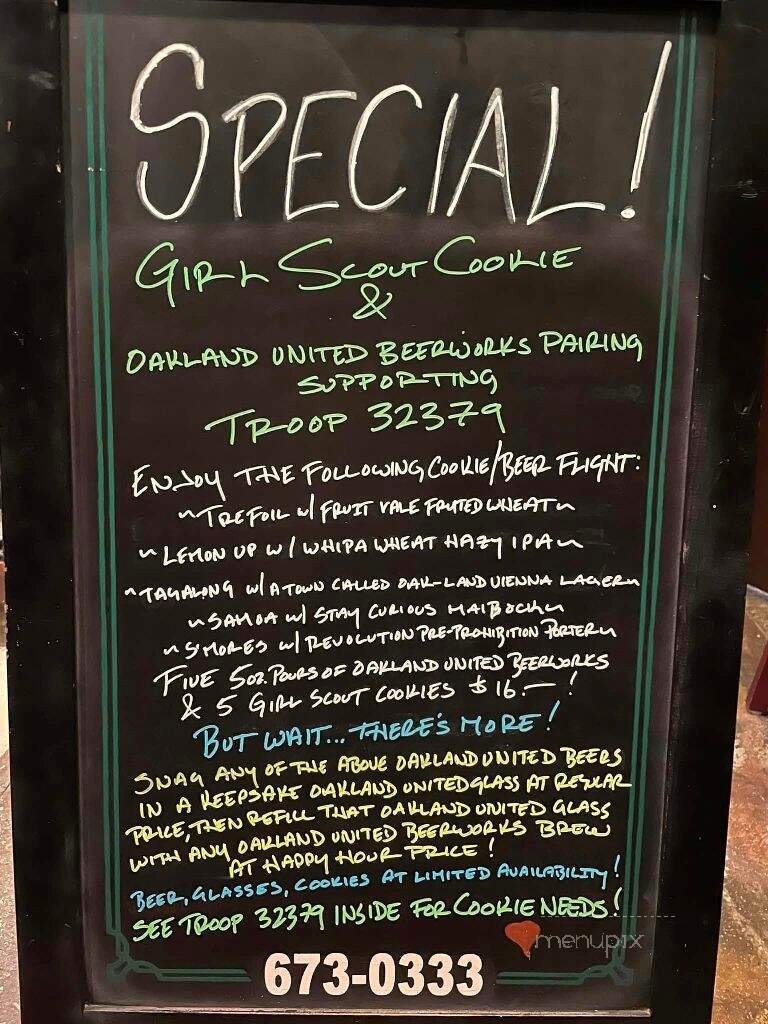 SPECIAL!
GIRL SCOUT COOKIE
&
OAKLAND UNITED BEERWORKS PAIRING
SUPPORTING
TROOP 32379
ENJOY THE FOLLOWING COOKIE/BEER FLIGHT:
~TREFOIL w/ FRUIT VALE FRUITED WHEAT~
~ LEMON UP w/ WHIPA WHEAT HAZY IPA~
~TAGALONG w/ A TOWN CALLED OAK-LAND VIENNA LAGER~
~SAMOA w/ STAY CURIOUS MAIBOCK~
~S'MORES w/ REVOLUTION PRE-PROHIBITION PORTER~
FIVE 5OZ. POURS OF OAKLAND UNITED BEERWORKS
& 5 GIRL SCOUT COOKIES $16.— !
BUT WAIT... THERE'S MORE!
SNAG ANY OF THE ABOVE OAKLAND UNITED BEERS
IN A KEEPSAKE OAKLAND UNITED GLASS AT REGULAR
PRICE, THEN REFILL THAT OAKLAND UNITED GLASS
WITH ANY OAKLAND UNITED BEERWORKS BREW
AT HAPPY HOUR PRICE!
BEER, GLASSES, COOKIES AT LIMITED AVAILABILITY!
SEE TROOP 32379 INSIDE FOR COOKIE NEEDS!
menupix
673-0333